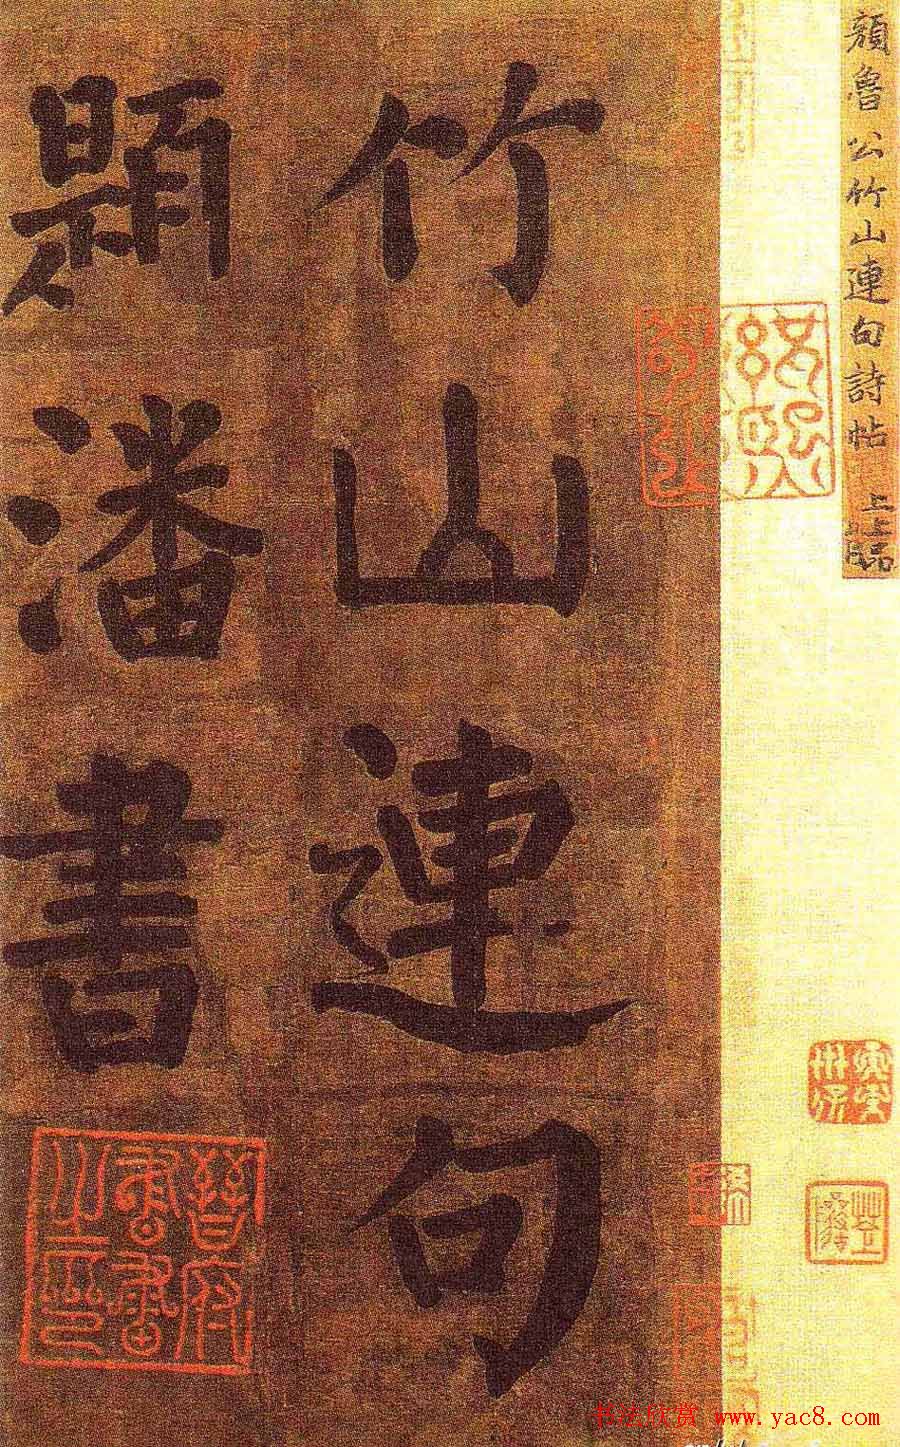 顔魯公竹山連句詩帖 上上品
竹山連句
題潘書
晉府
書畫
之印
书法欣赏 www.yac8.com